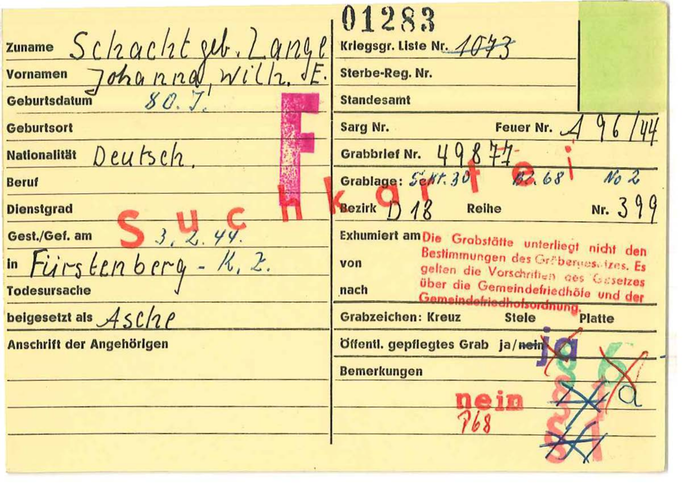 01283
Zuname Schacht geb. Lange
Vornamen Johanna, Wilh. E.
Geburtsdatum 80. J.
Geburtsort
Nationalität Deutsch.
Beruf
Dienstgrad
Gest./Gef. am 3. 2. 44.
in Fürstenberg - K. Z.
Todesursache
beigesetzt als Asche
Anschrift der Angehörigen
F
Suchkartei
Kriegsgr. Liste Nr. 1073
Sterbe-Reg. Nr.
Standesamt
Sarg Nr. Feuer Nr. A 96/44
Grabbrief Nr. 49877
Grablage: Sekt. 30 Bz. 68 No 2
Bezirk D 18 Reihe Nr. 399
Exhumiert am
von
nach
Die Grabstätte unterliegt nicht den
Bestimmungen des Gräbergesetzes. Es
gelten die Vorschriften des Gesetzes
über die Gemeindefriedhöfe und der
Gemeindefriedhofsordnung.
Grabzeichen: Kreuz Stele Platte
Öffentl. gepflegtes Grab ja/nein ja
Bemerkungen
a
nein
P68